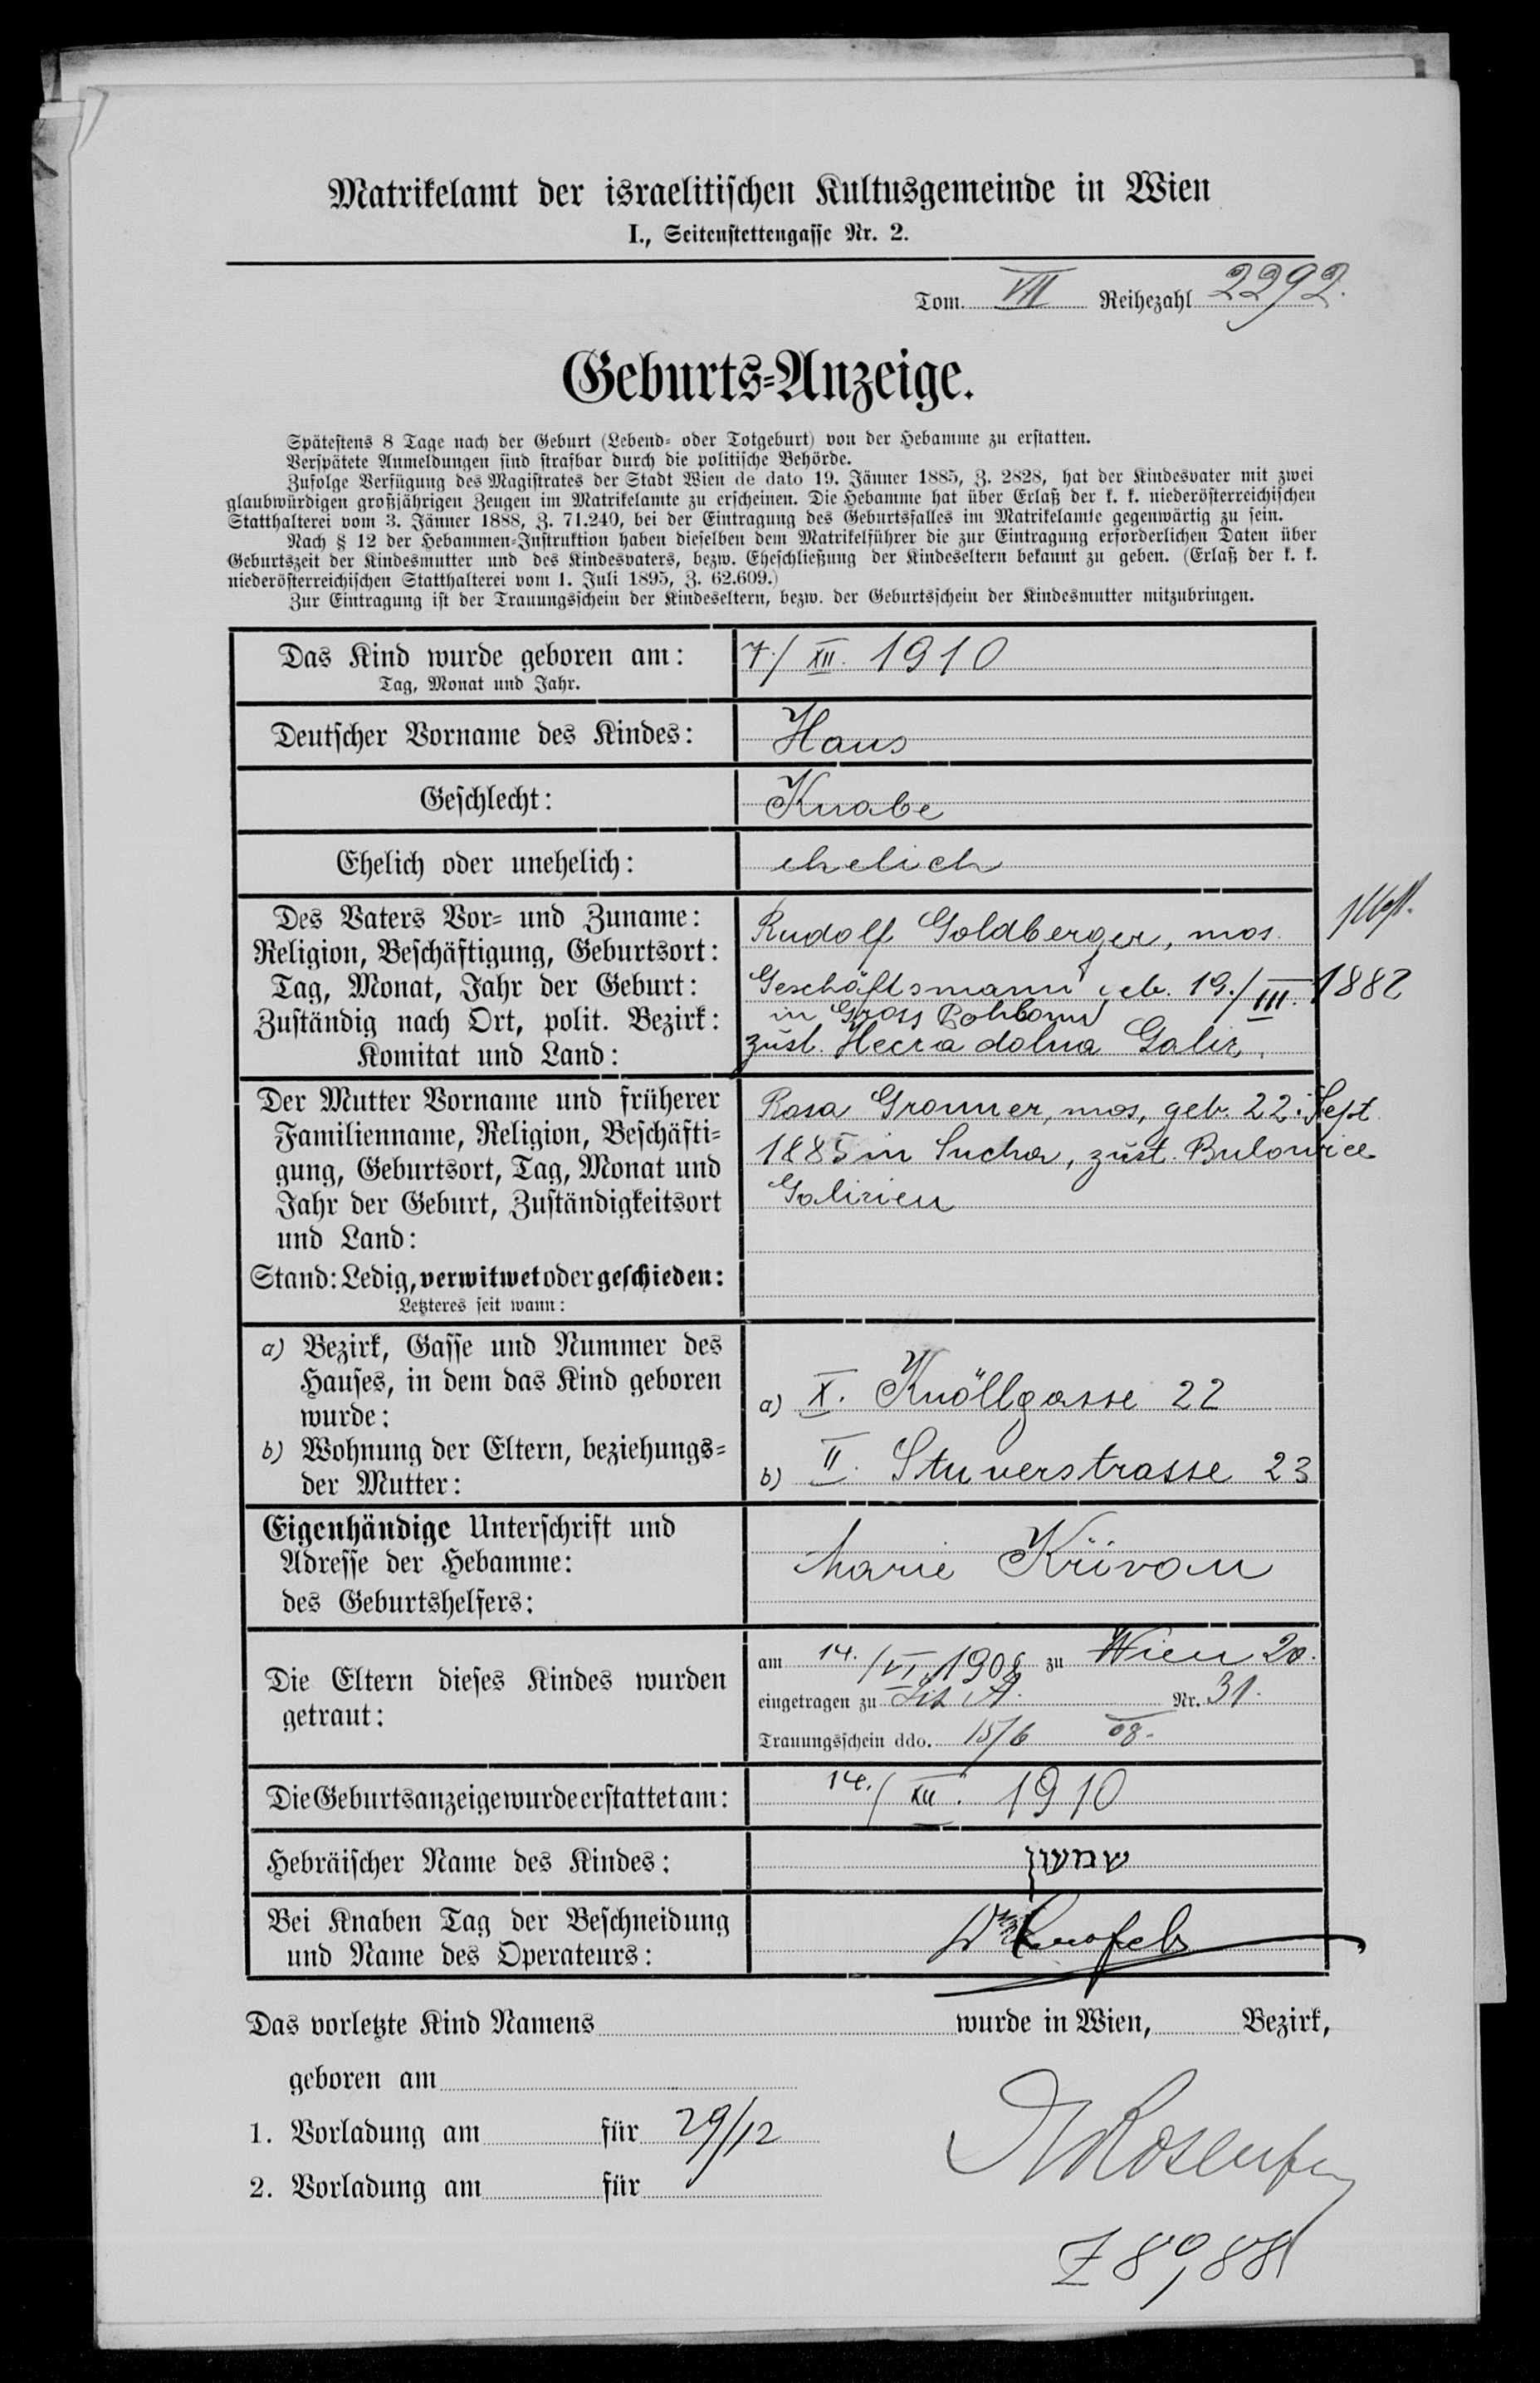 Matrikelamt der israelitischen Kultusgemeinde in Wien
I., Seitenstettengasse Nr. 2.
Tom. VII Reihezahl 2292.
Geburts-Anzeige.
Spätestens 8 Tage nach der Geburt (Lebend- oder Totgeburt) von der Hebamme zu erstatten.
Verspätete Anmeldungen sind strafbar durch die politische Behörde.
Zufolge Verfügung des Magistrates der Stadt Wien de dato 19. Jänner 1885, Z. 2828, hat der Kindesvater mit zwei
glaubwürdigen großjährigen Zeugen im Matrikelamte zu erscheinen. Die Hebamme hat über Erlaß der k. k. niederösterreichischen
Statthalterei vom 3. Jänner 1888, Z. 71.240, bei der Eintragung des Geburtsfalles im Matrikelamte gegenwärtig zu sein.
Nach § 12 der Hebammen-Instruktion haben dieselben dem Matrikelführer die zur Eintragung erforderlichen Daten über
Geburtszeit der Kindesmutter und des Kindesvaters, bezw. Eheschließung der Kindeseltern bekannt zu geben. (Erlaß der k. k.
niederösterreichischen Statthalterei vom 1. Juli 1895, Z. 62.609.)
Zur Eintragung ist der Trauungsschein der Kindeseltern, bezw. der Geburtsschein der Kindesmutter mitzubringen.
Das Kind wurde geboren am: 7./XII. 1910
Tag, Monat und Jahr.
Deutscher Vorname des Kindes: Hans
Geschlecht: Knabe
Ehelich oder unehelich: ehelich
Des Vaters Vor- und Zuname:
Religion, Beschäftigung, Geburtsort:
Tag, Monat, Jahr der Geburt:
Zuständig nach Ort, polit. Bezirk:
Komitat und Land:
Rudolf Goldberger, mos.
Geschäftsmann geb. 19./III. 1882
in Gross
zust. dolna Galiz.
Der Mutter Vorname und früherer
Familienname, Religion, Beschäfti-
gung, Geburtsort, Tag, Monat und
Jahr der Geburt, Zuständigkeitsort
und Land:
Stand: Ledig, verwitwet oder geschieden:
Letzteres seit wann:
Rosa Gronner, mos, geb. 22. Sept
1885 in Sucha, zust. Bulowice
Galizien
a) Bezirk, Gasse und Nummer des
Hauses, in dem das Kind geboren
wurde:
b) Wohnung der Eltern, beziehungs-
der Mutter:
a) X. Knöllgasse 22
b) II. Stuverstrasse 23
Eigenhändige Unterschrift und
Adresse der Hebamme:
des Geburtshelfers:
Marie Křivan
Die Eltern dieses Kindes wurden
getraut:
am 14./VI 1908 zu Wien 20.
eingetragen zu Lit A. Nr. 31.
Trauungsschein ddo. 15/6 08.
Die Geburtsanzeige wurde erstattet am: 14./XII. 1910
Hebräischer Name des Kindes: שמשון
Bei Knaben Tag der Beschneidung
und Name des Operateurs:
Das vorletzte Kind Namens wurde in Wien, Bezirk,
geboren am
1. Vorladung am für 29/12
2. Vorladung am für